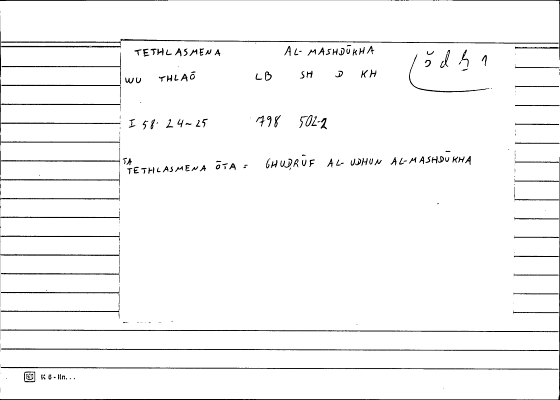 TETHLASMENA AL-MASHDŪKHA
ŏ d ḫ 1
WU THLAŌ LB SH D KH
I 58. 24~25 798 502-2
TA
TETHLASMENA ŌTA = GHUḌRŪF AL-UDHUN AL-MASHDŪKHA